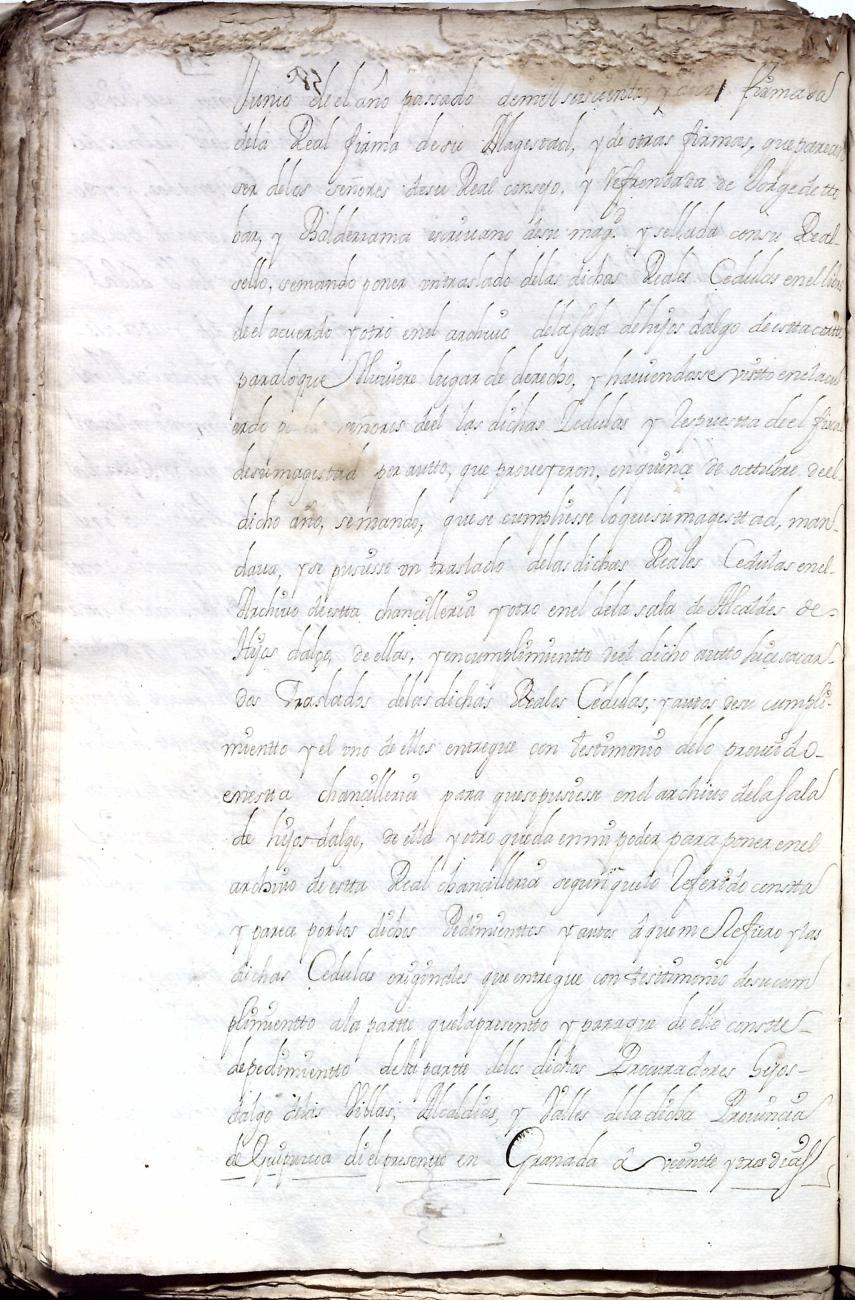 Junio de el año passado de mil seiscientos, y firmada
de la Real firma de su Magestad, y de otras firmas, que parecen
ser de los señores de su Real consejo, y refrendada de Jorge de tto
bar, y Balderrama escriuano de su magd. y sellada con su Real
sello, se mando poner vn traslado de las dichas Reales Cedulas en el libro
de el acuerdo y otro en el archiuo de la sala de hijos dalgo de estta cortte
para lo que Huuiere lugar de derecho, y hauiendosse vistto en el acu
erdo señores deel las dichas Cedulas y respuestta de el fiscal
de su magestad por autto, que proueyeron, en quince de octtubre de el
dicho año, se mando, que se cumpliesse lo que su magesttad, man
daua, y se pusiesse vn traslado de las dichas Reales Cedulas en el
Archiuo de estta chancilleria y otro en el de la sala de Alcaldes de
Hijos dalgo, de ellas, y en cumplimientto de el dicho autto hice sacar
dos Traslados de las dichas Reales Cedulas, y autos de su cumpli-
mientto y el vno de ellos entregue con testimonio de lo proueido
en estta chancilleria para que se pusiesse en el archiuo de la sala
de hijos dalgo, de ella y otro queda en mi poder para poner en el
archiuo de estta Real chancilleria segun que lo referido constta
y parece por los dichos Pedimienttos y autos â que me Refiero y las
dichas Cedulas originales que entregue con testimonio de su cum
plimientto a la partte que la presentto y para que de ello constte
de pedimientto de la partte de los dichos Procuradores Hijos-
dalgo de las Villas, Alcaldias, y Valles de la dicha Prouincia
de Guipuzcoa di el presentte en Granada â veintte y tres dias